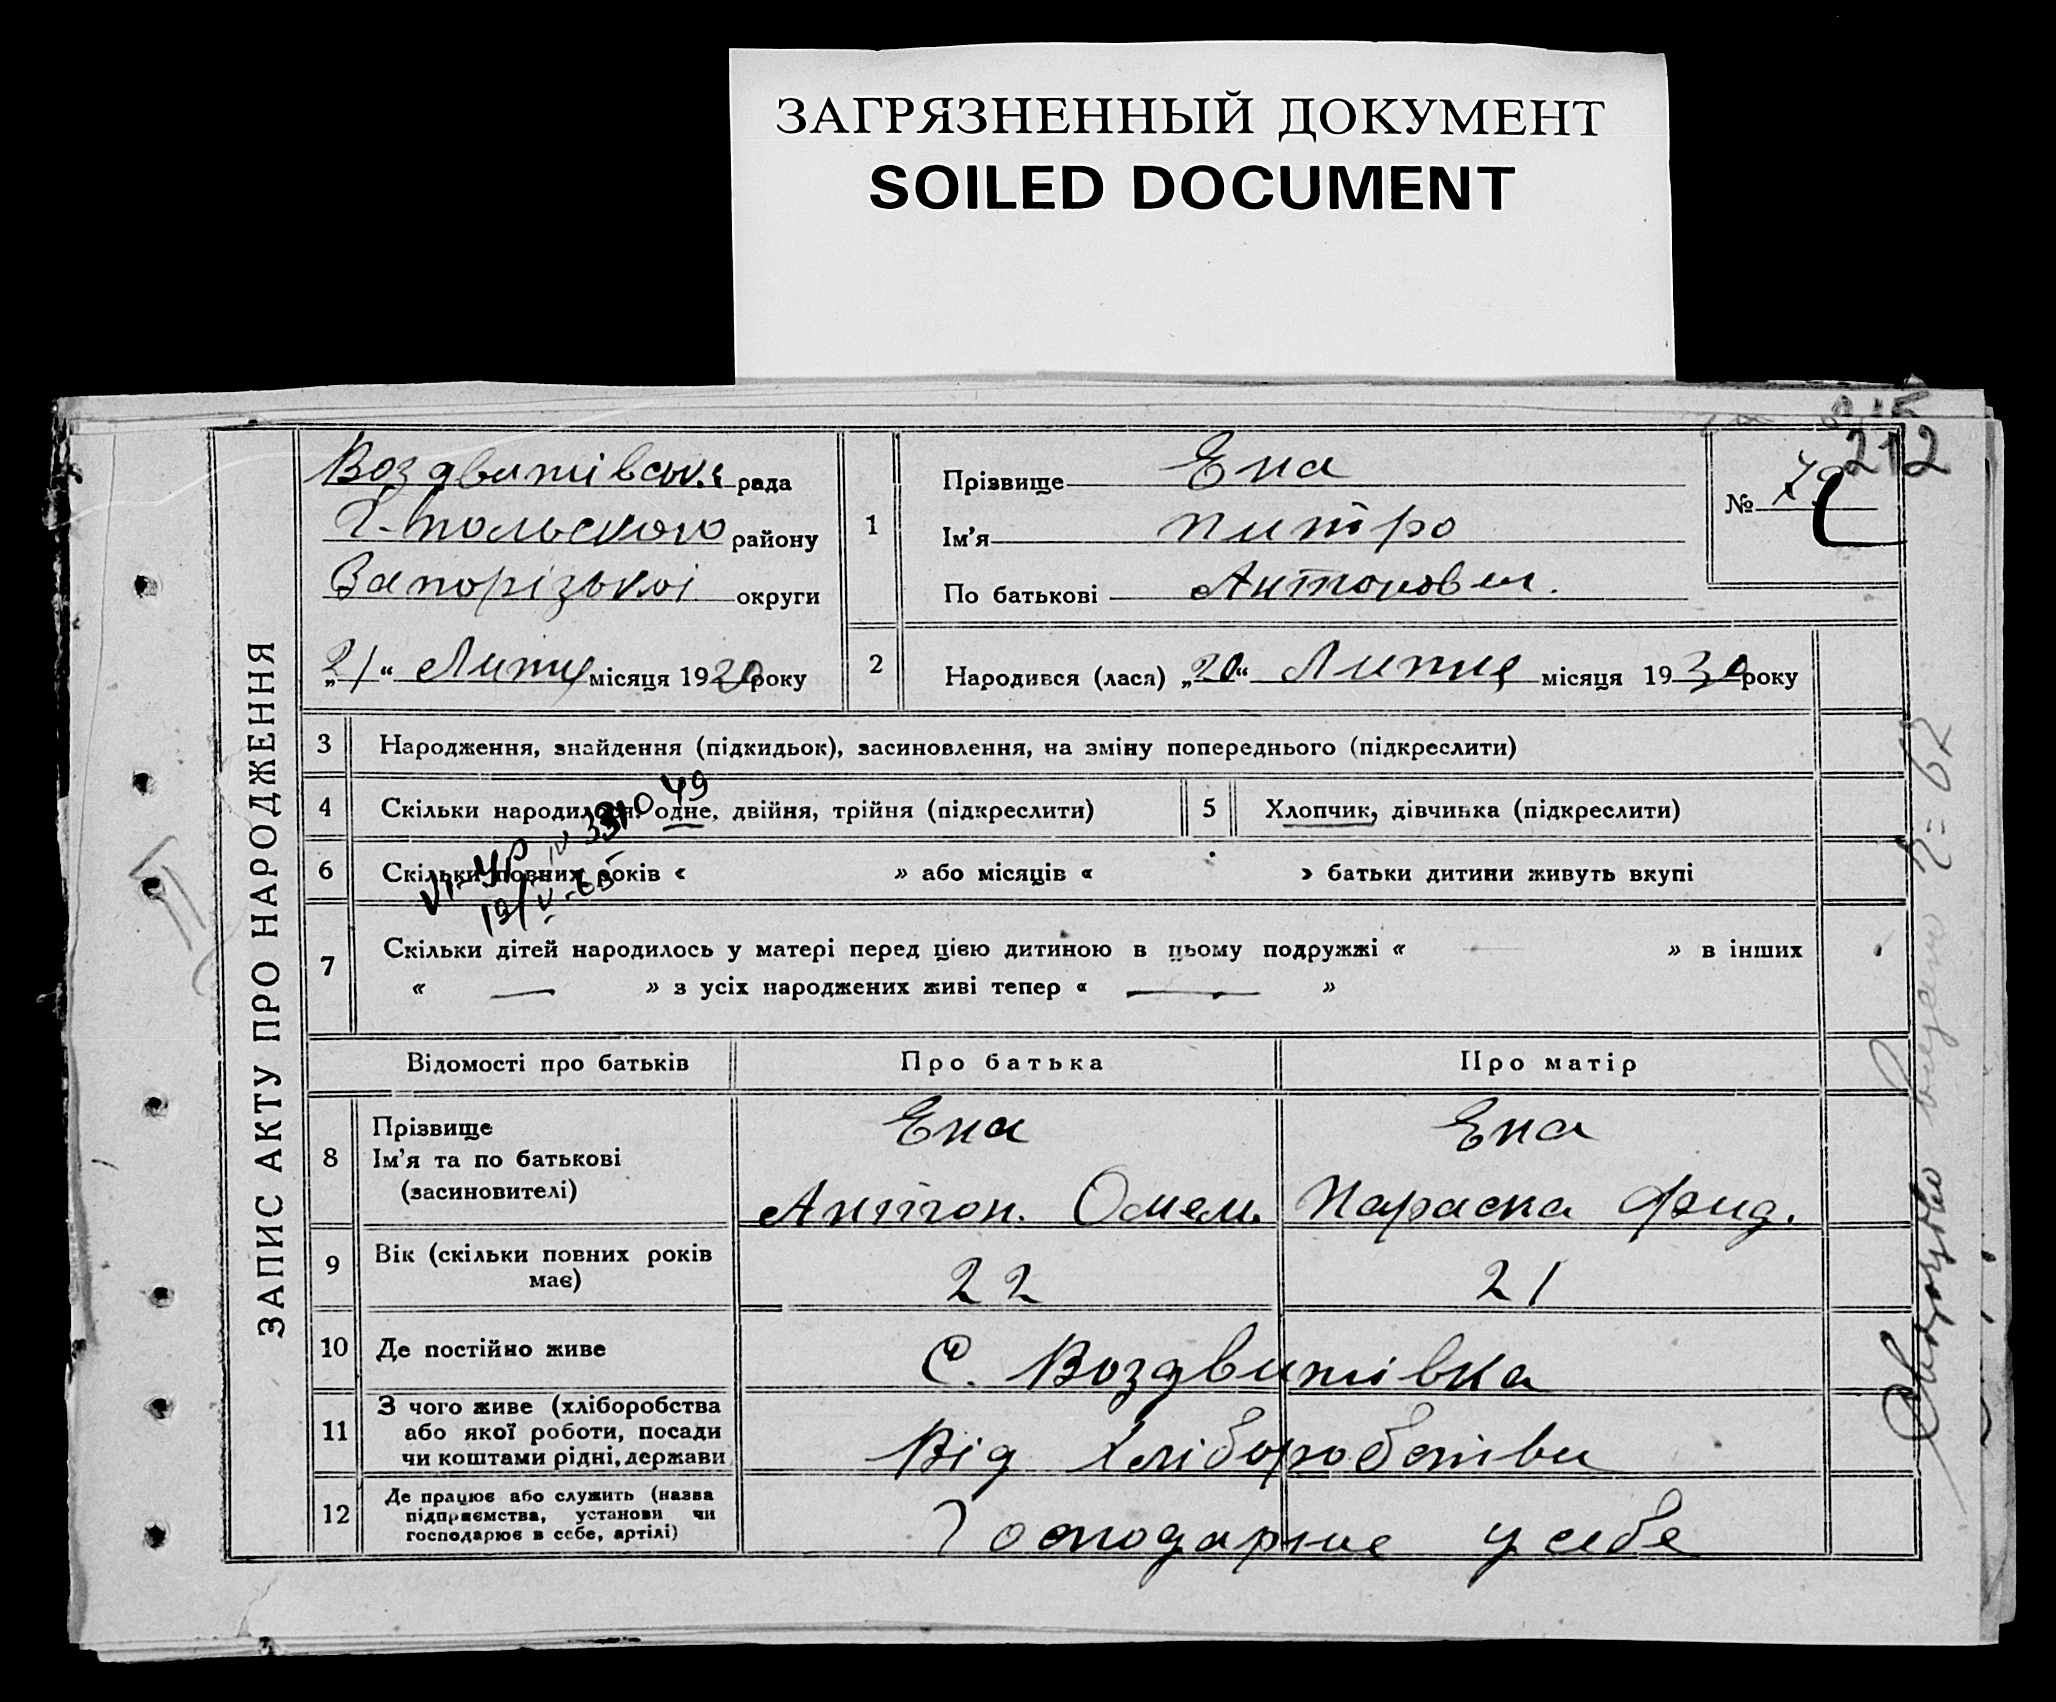 ЗАГРЯЗНЕННЫЙ ДОКУМЕНТ
SOILED DOCUMENT
212
ЗАПИС АКТУ ПРО НАРОДЖЕННЯ
Воздвитівська рада
Г-польского району
Запорізької округи
„21“ Липця місяця 1930 року
1
Прізвище Ена
Ім’я Питро
По батькові Антонович.
№ 79
2
Народився (лася) „20“ Липця місяця 1930 року
3 Народження, знайдення (підкидьок), засиновлення, на зміну попереднього (підкреслити)
4 Скільки народилося: одне, двійня, трійня (підкреслити)
5 Хлопчик, дівчинка (підкреслити)
6 Скільки повних років « » або місяців « » батьки дитини живуть вкупі
7 Скільки дітей народилось у матері перед цією дитиною в цьому подружжі « — » в інших
« — » з усіх народжених живі тепер « — »
Відомості про батьків Про батька Про матір
8 Прізвище
Ім’я та по батькові
(засиновителі)
Ена
Антон. Омел.
Ена
Параска Фид.
9 Вік (скільки повних років
має)
22 21
10 Де постійно живе С. Воздвитівка
11 З чого живе (хліборобства
або якої роботи, посади
чи коштами рідні, держави
Від хліборобства
12 Де працює або служить (назва
підприємства, установи чи
господарює в себе, артілі)
Господарює у себе